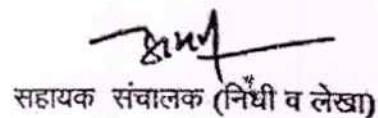 सहायक संचालक (निधी व लेखा)